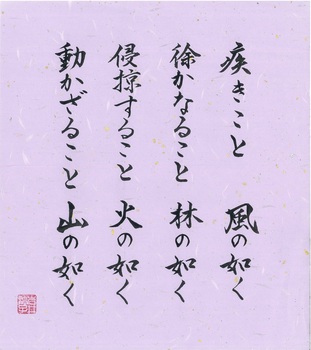 疾きこと 風の如く
徐かなること 林の如く
侵掠すること 火の如く
動かざること 山の如く